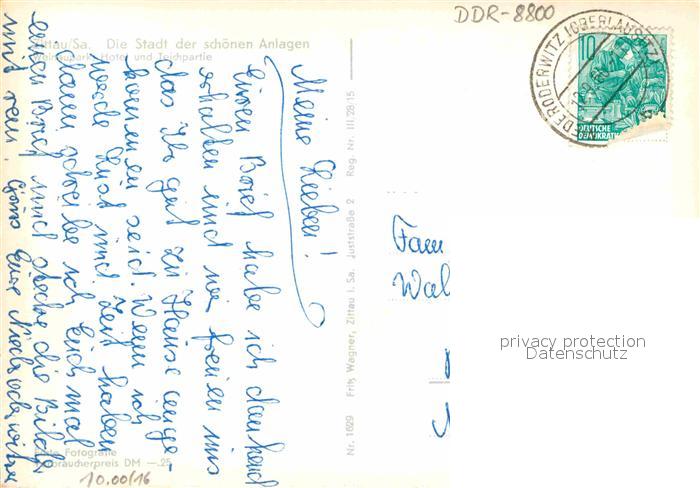 DDR-8800
Zittau/Sa. Die Stadt der schönen Anlagen
Weinaupark, Hotel und Teichpartie
Meine Lieben!
Euren Brief habe ich dankend
erhalten und wir freuen uns
das Ihr gut zu Hause ange-
kommen seid. Wenn ich
werde Lust und Zeit haben
dann schreibe ich Euch mal
einen Brief und stecke die Bilder
mit rein. Eure
Echte Fotografie
Verbraucherpreis DM —.25
10.00/16
Nr. 1629 Fritz Wagner, Zittau i. Sa. Juststraße 2 Reg. Nr. III/28/15
ODERODERWITZ (OBERLAUSITZ)
10
DEUTSCHE
DEMOKRAT
Fam
Wal
privacy protection
Datenschutz